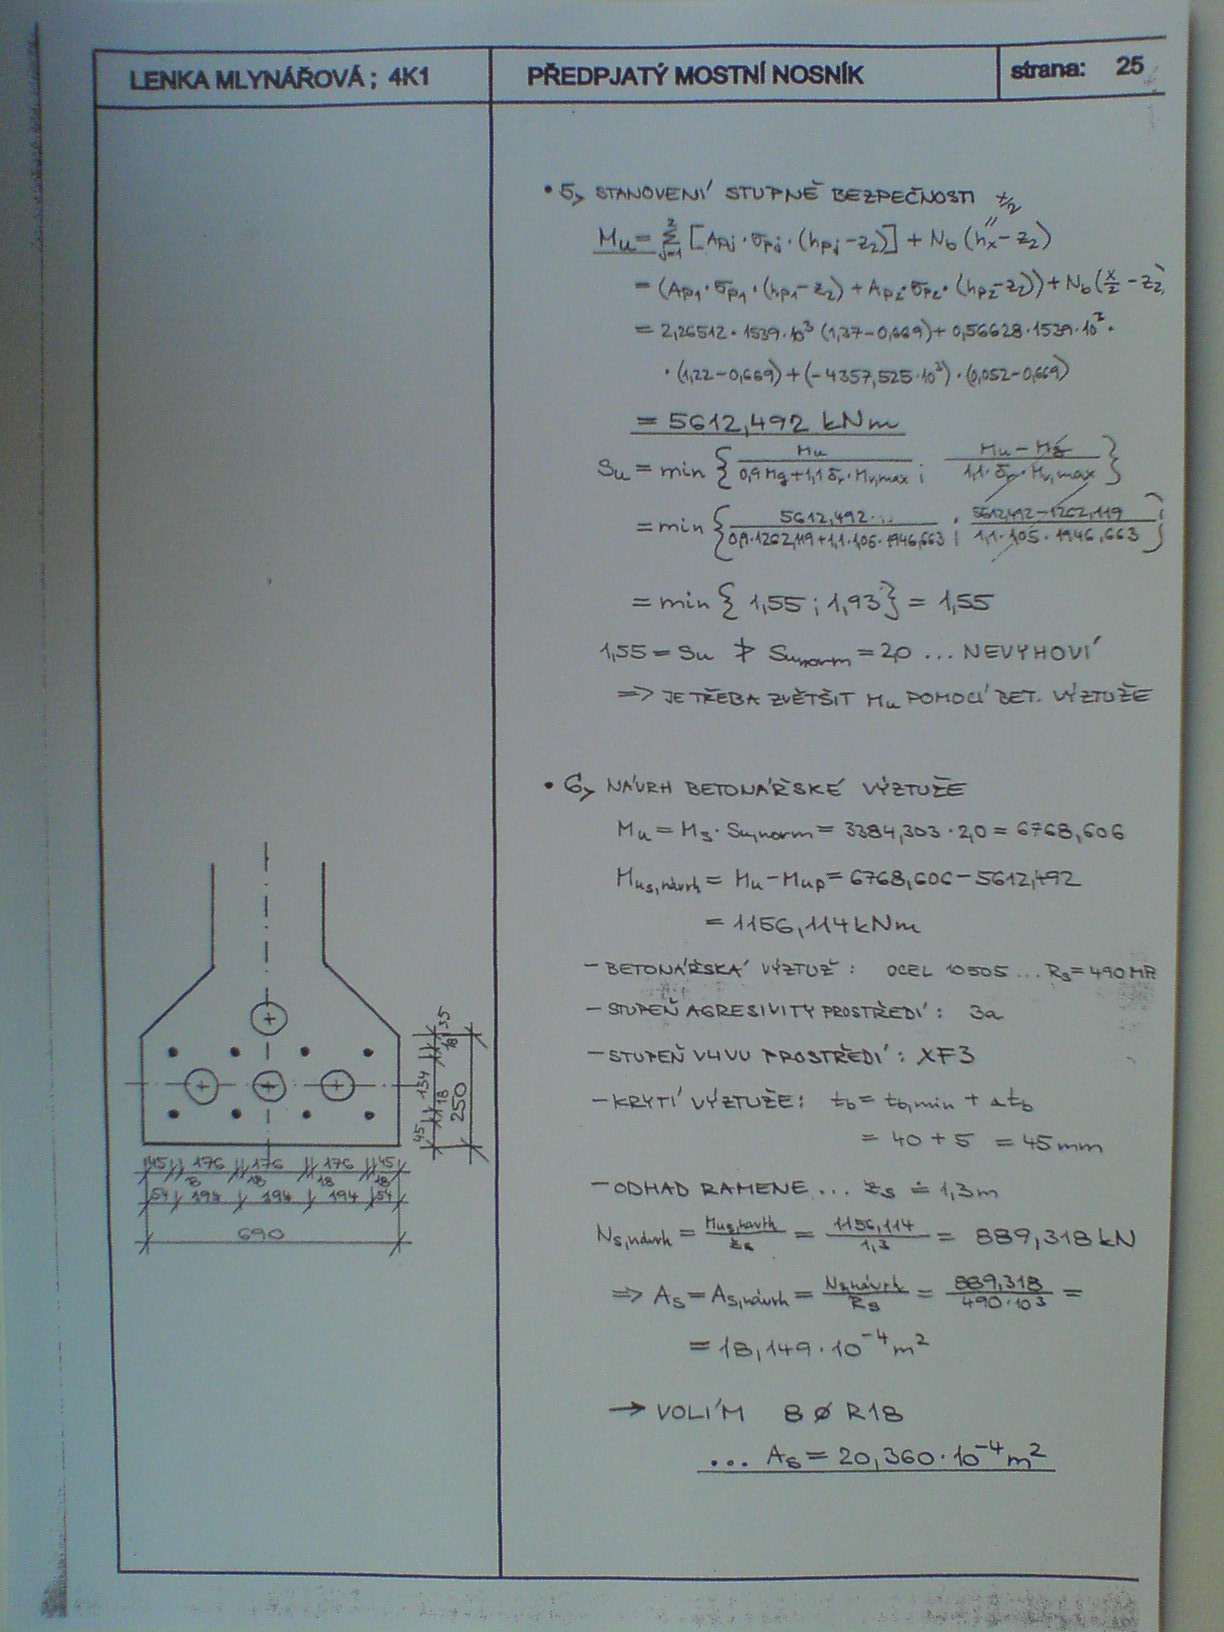 LENKA MLYNÁŘOVÁ ; 4K1
PŘEDPJATÝ MOSTNÍ NOSNÍK
strana: 25
• 5, STANOVENÍ STUPNĚ BEZPEČNOSTI
x/2
Mu = Σ j=1 2 [Apj · σpj · (hpj - z2)] + Nb (hx - z2)
= (Ap1 · σp1 · (hp1 - z2) + Ap2 · σp2 · (hp2 - z2)) + Nb (x/2 - z2)
= 2,26512 · 1539 · 10³ (1,37 - 0,669) + 0,56628 · 1539 · 10³ ·
· (1,22 - 0,669) + (-4357,525 · 10³) · (0,052 - 0,669)
= 5612,492 kNm
Su = min { Mu / 0,9 Mg + 1,1 δr · Mv,max ; Mu - Mg / 1,1 · δr · Mv,max }
= min { 5612,492 / 0,9 · 1262,119 + 1,1 · 1,05 · 1946,663 ; 5612,492 - 1262,119 / 1,1 · 1,05 · 1946,663 }
= min { 1,55 ; 1,93 } = 1,55
1,55 = Su ≯ Su,norm = 2,0 ... NEVYHOVÍ
=> JE TŘEBA ZVĚTŠIT Mu POMOCÍ BET. VÝZTUŽE
• 6, NÁVRH BETONÁŘSKÉ VÝZTUŽE
Mu = Ms · Su,norm = 3384,303 · 2,0 = 6768,606
Mus,návrh = Mu - Mup = 6768,606 - 5612,492
= 1156,114 kNm
- BETONÁŘSKÁ VÝZTUŽ : OCEL 10505 ... Rs = 490 MPa
- STUPEŇ AGRESIVITY PROSTŘEDÍ : 3a
- STUPEŇ VLIVU PROSTŘEDÍ : XF3
- KRYTÍ VÝZTUŽE : tb = tb,min + Δtb
= 40 + 5 = 45 mm
- ODHAD RAMENE ... zs ≐ 1,3 m
Ns,návrh = Mus,návrh / zs = 1156,114 / 1,3 = 889,318 kN
=> As = As,návrh = Ns,návrh / Rs = 889,318 / 490 · 10³ =
= 18,149 · 10⁻⁴ m²
→ VOLÍM 8 ø R18
... As = 20,360 · 10⁻⁴ m²
35
18
134
18
45
250
45 176 176 176 45
18 18 18 18
54 194 194 194 54
690